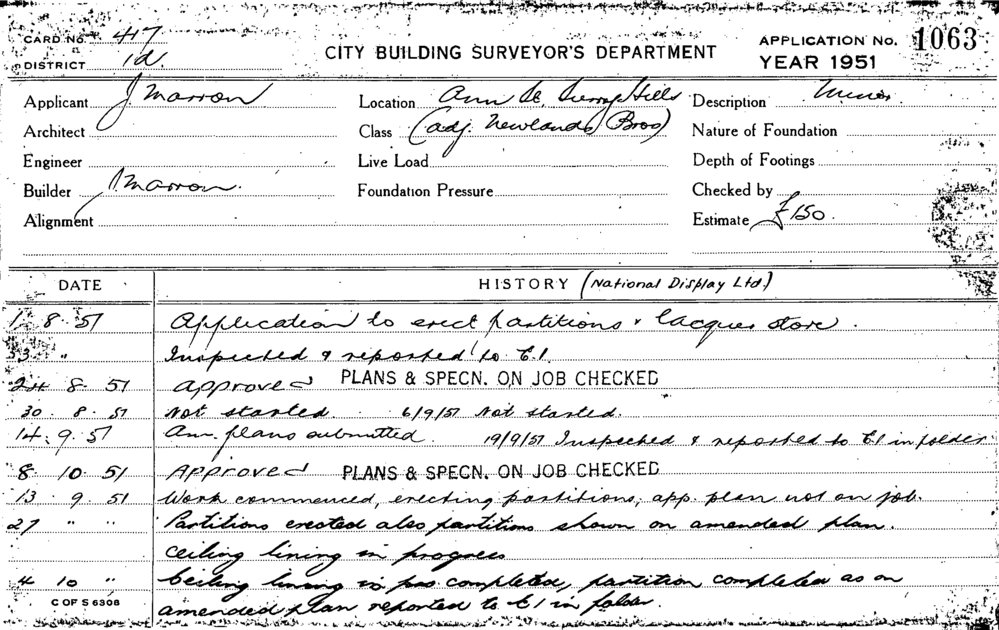 CARD No. 417
DISTRICT 1d.
CITY BUILDING SURVEYOR'S DEPARTMENT
APPLICATION No. 1063
YEAR 1951
Applicant J. Marron
Location Ann St. Surry Hills
Description Minor.
Architect
Class (adj. Newlands Bros)
Nature of Foundation
Engineer
Live Load
Depth of Footings
Builder J. Marron.
Foundation Pressure
Checked by
Alignment
Estimate £150.
DATE
HISTORY (National Display Ltd.)
1 8 51 Application to erect partitions & lacquer store.
" Inspected & reported to E.I.
24 8 51 Approved PLANS & SPECN. ON JOB CHECKED
30 8 51 Not started. 6/9/51 Not started.
14. 9. 51 Am. plans submitted. 19/9/51 Inspected & reported to EI in folder
8 10 51 Approved PLANS & SPECN. ON JOB CHECKED
13 9 51 Work commenced, erecting partitions, app. plan not on job.
27 " " Partitions erected also partition shown on amended plan.
ceiling lining in progress
4 10 " Ceiling lining completed, partition completed as on
C OF S 6308
amended plan reported to EI in folder.